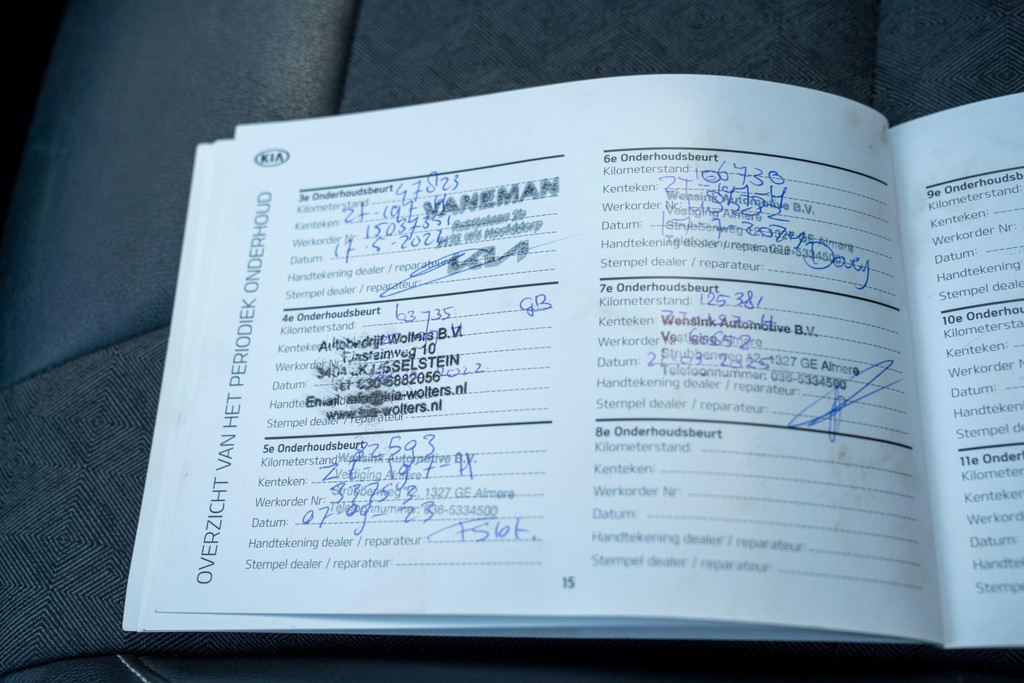 KIA
OVERZICHT VAN HET PERIODIEK ONDERHOUD
3e Onderhoudsbeurt
Kilometerstand: 47823
Kenteken:
Werkorder Nr:
Datum:
Handtekening dealer / reparateur:
Stempel dealer / reparateur:
VANEMAN
KIA
4e Onderhoudsbeurt
Kilometerstand: 63.735 GB
Kenteken:
Werkorder Nr:
Datum: 2022
Stempel dealer / reparateur:
Autobedrijf Wolters B.V.
Einsteinweg 10
IJSSELSTEIN
Tel 030-6882056
www.kia-wolters.nl
5e Onderhoudsbeurt
Kilometerstand: 82593
Kenteken: ZT-197-H
Werkorder Nr:
Datum: 07 09 23
Handtekening dealer / reparateur:
Stempel dealer / reparateur:
Wensink Automotive B.V.
Vestiging Almere
Strubbenweg 12, 1327 GE Almere
Telefoonnummer: 036-5334500
15
6e Onderhoudsbeurt
Kilometerstand: 106730
Kenteken:
Werkorder Nr:
Datum:
Handtekening dealer / reparateur:
Stempel dealer / reparateur:
Wensink Automotive B.V.
Vestiging Almere
Strubbenweg 12, 1327 GE Almere
Telefoonnummer: 036-5334500
7e Onderhoudsbeurt
Kilometerstand: 125.381
Kenteken:
Werkorder Nr:
Datum: 21-03-2025
Handtekening dealer / reparateur:
Stempel dealer / reparateur:
Wensink Automotive B.V.
Vestiging Almere
Strubbenweg 12, 1327 GE Almere
Telefoonnummer: 036-5334500
8e Onderhoudsbeurt
Kilometerstand:
Kenteken:
Werkorder Nr:
Datum:
Handtekening dealer / reparateur:
Stempel dealer / reparateur:
9e Onderhoudsb
Kilometerstand:
Kenteken:
Werkorder Nr:
Datum:
Handtekening
Stempel deale
10e Onderho
Kilometersta
Kenteken:
Werkorder N
Datum:
Handtekenin
Stempel de
11e Onderh
Kilometer
Kenteken
Werkord
Datum:
Handtek
Stempe